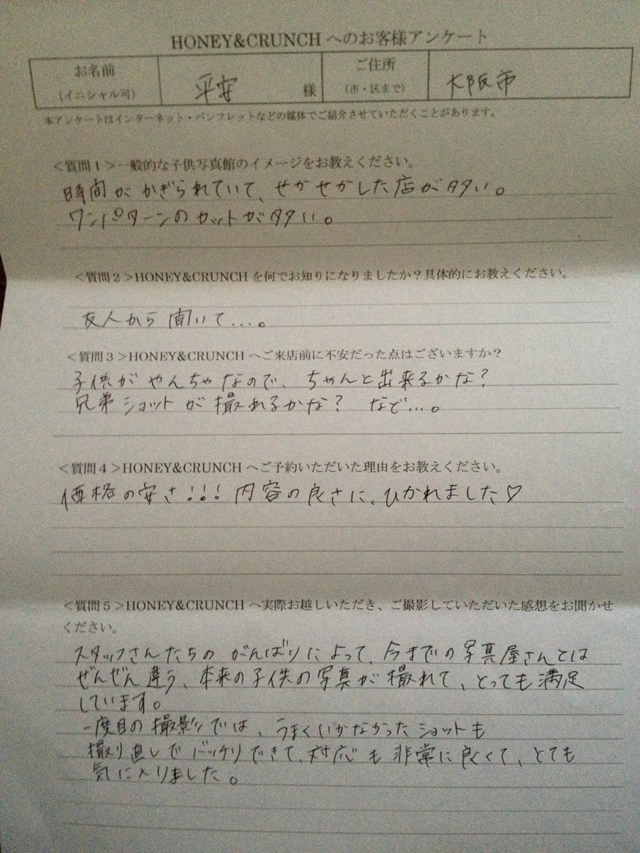 HONEY&CRUNCH へのお客様アンケート
お名前 (イニシャル可) 平安 様 ご住所 (市・区まで) 大阪市
本アンケートはインターネット・パンフレットなどの媒体でご紹介させていただくことがあります。
<質問1>一般的な子供写真館のイメージをお教えください。
時間がかぎられていて、せかせかした店が多い。
ワンパターンのカットが多い。
<質問2>HONEY&CRUNCH を何でお知りになりましたか?具体的にお教えください。
友人から聞いて…。
<質問3>HONEY&CRUNCH へご来店前に不安だった点はございますか?
子供がやんちゃなので、ちゃんと出来るかな?
兄弟ショットが撮れるかな? など…。
<質問4>HONEY&CRUNCH へご予約いただいた理由をお教えください。
価格の安さ!!! 内容の良さに、ひかれました♡
<質問5>HONEY&CRUNCH へ実際お越しいただき、ご撮影していただいた感想をお聞かせ
ください。
スタッフさんたちの がんばりによって、今までの写真屋さんとは
ぜんぜん違う、本来の子供の写真が撮れて、とっても満足
しています。
一度目の撮影では、うまくいかなかったショットも
撮り直しでバッチリできて、対応も非常に良くて、とても
気に入りました。